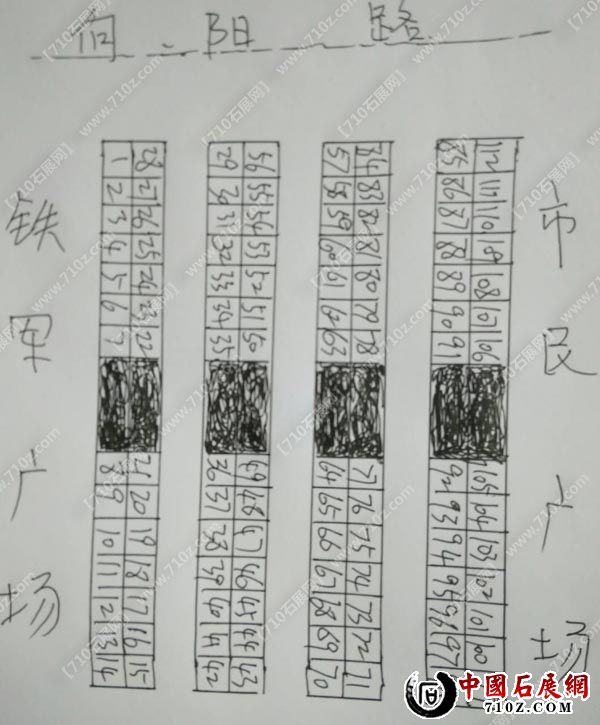 向 阳 路
铁军广场
1 28 29 56 57 84 85 112
2 27 30 55 58 83 86 111
3 26 31 54 59 82 87 110
4 25 32 53 60 81 88 109
5 24 33 52 61 80 89 108
6 23 24 51 62 79 90 107
7 22 35 50 63 78 91 106
8 21 36 49 64 77 92 105
9 20 37 48 65 76 93 104
10 19 38 47 66 75 94 103
11 18 39 46 67 74 95 102
12 17 40 45 68 73 96 101
13 16 41 44 69 72 97 100
14 15 42 43 70 71
市民广场
【710石展网】
www.710z.com
中國石展網
710Z.COM